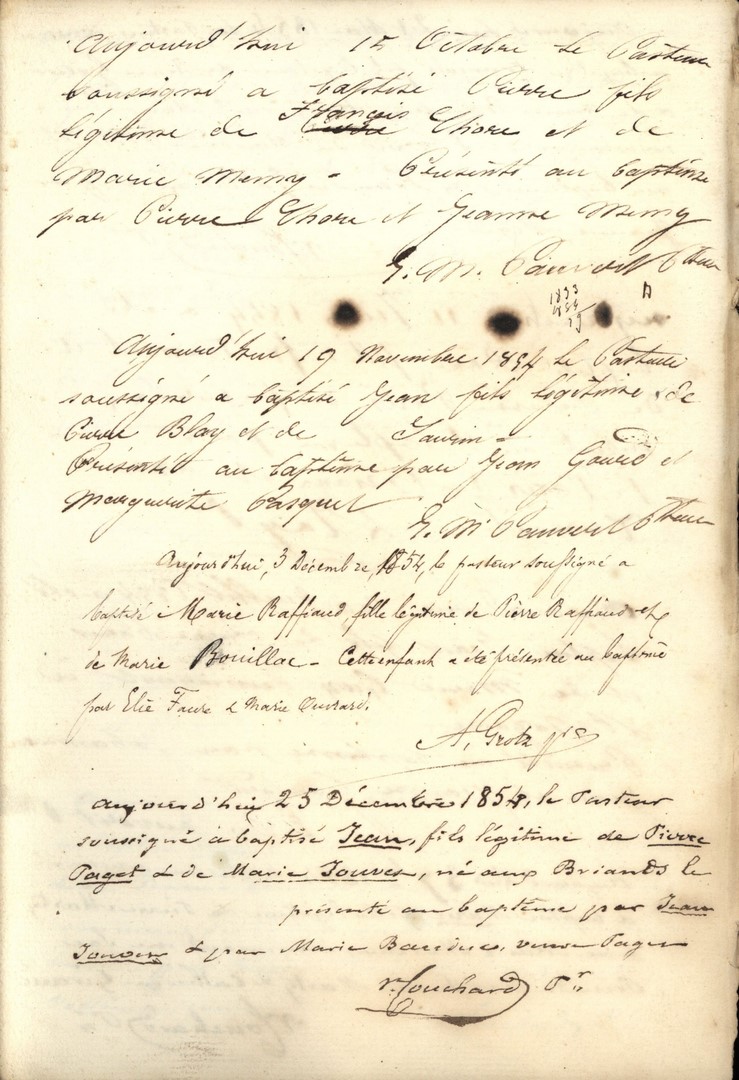 Aujourd'hui 15 Octobre le Pasteur
soussigné a baptisé Pierre fils
François
légitime de Chore et de
Marie Memy - Présenté au baptême
par Pierre Chore et Jeanne Memy
G. M. Pasteur
1833
1854
19
Aujourd'hui 19 Novembre 1854 le Pasteur
soussigné a baptisé Jean fils légitime de
Pierre Blay et de Saurin =
Présenté au baptême par Jean Gourd et
Marguerite Pasquet
G. M. Pasteur
Aujourd'hui, 3 Décembre, 1854, le pasteur soussigné a
baptisé : Marie Raffiaud, fille légitime de Pierre Raffiaud et
de Marie Bouillac - Cette enfant a été présentée au baptême
par Elie Faure & Marie Ouvrard.
A, Grotz
aujourd'hui 25 Décembre 1854, le Pasteur
soussigné à baptisé Jean, fils légitime de Pierre
Paget & de Marie Jouves, né aux Briands le
présenté au baptême par Jean
Jouves & par Marie Bauduc, veuve Paget
Couchard Pr